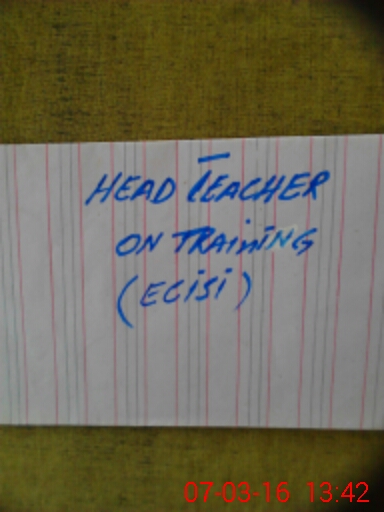 HEAD TEACHER
ON TRAiNiNG
(ECiSi)
07-03-16 13:42